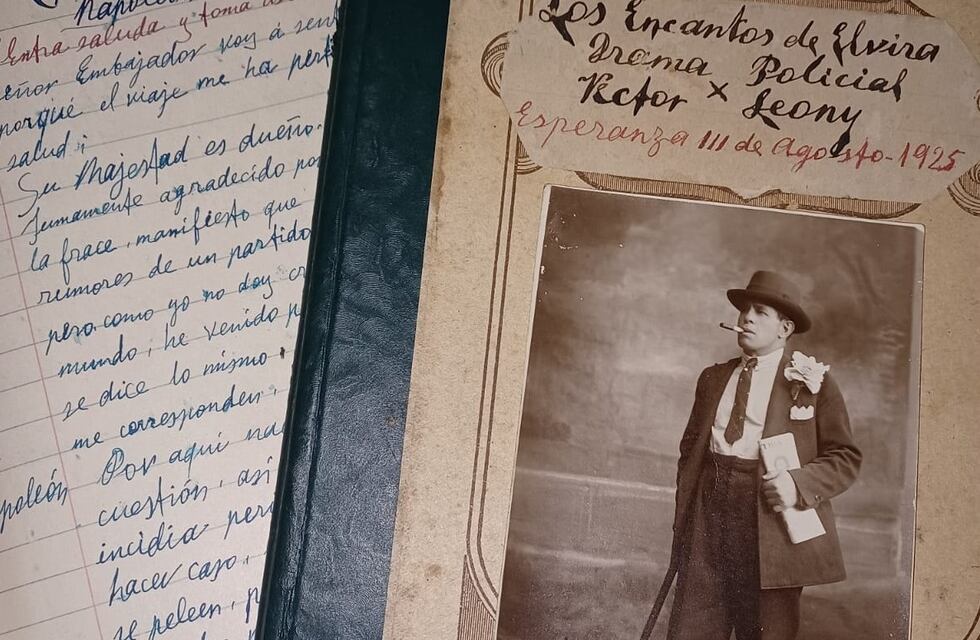 Napoleón
Entra saluda y toma
señor Embajador voy á sen
porqué el viaje me ha pert
salud;
Su Majestad es dueño.
Sumamente agradecido por
la frace, manifiesto que
rumores de un partido
pero como yo no doy cr
mundo, he venido p
se dice lo mismo
me corresponden,
Por aquí
poleón
cuestión, así
incidia pero
hacer caso,
se peleen, p
Los Encantos de Elvira
Drama Policial
Víctor x Leony
Esperanza 111 de Agosto-1925